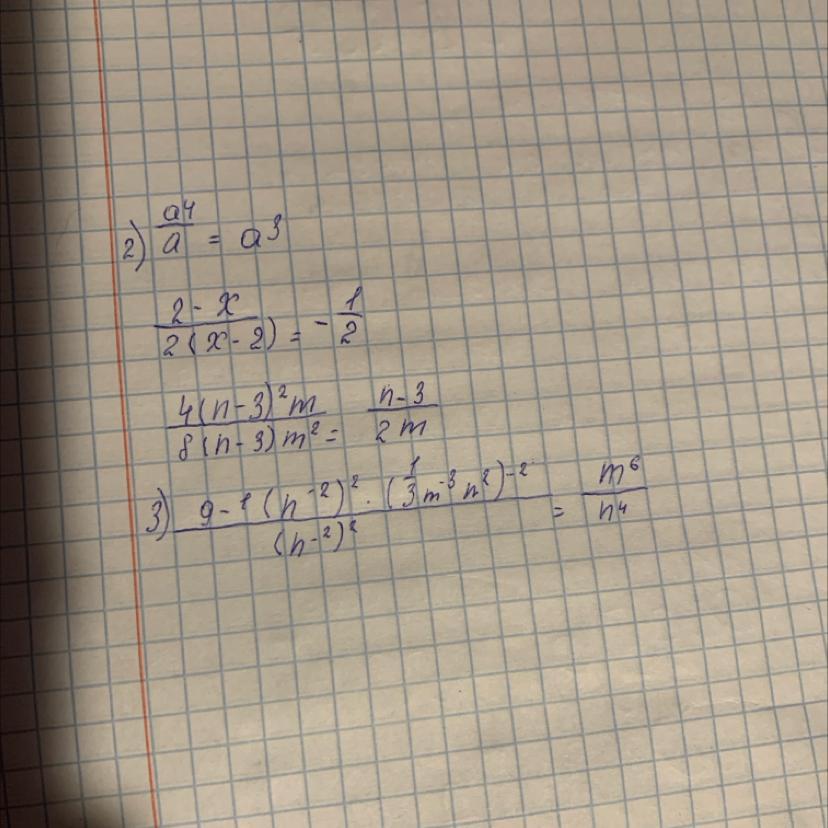 2) a⁴/a = a³
(2 - x)/(2(x - 2)) = - 1/2
(4(n - 3)²m)/(8(n - 3)m²) = (n - 3)/(2m)
3) (9⁻¹(n⁻²)² · (1/3 m⁻³n²)⁻²)/((n⁻²)²) = m⁶/n⁴